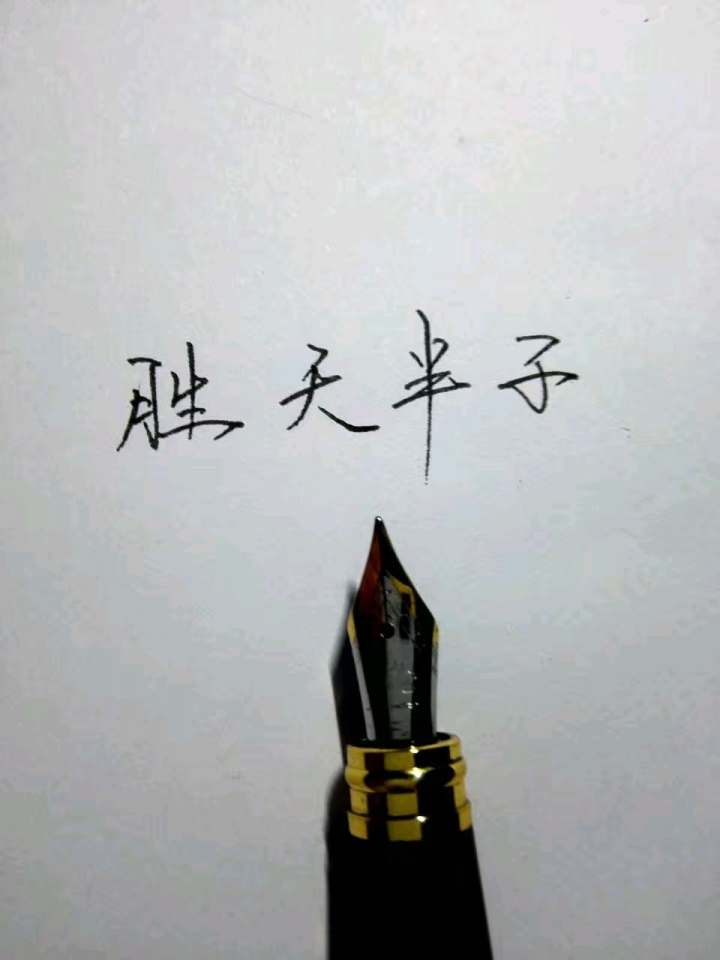 胜天半子